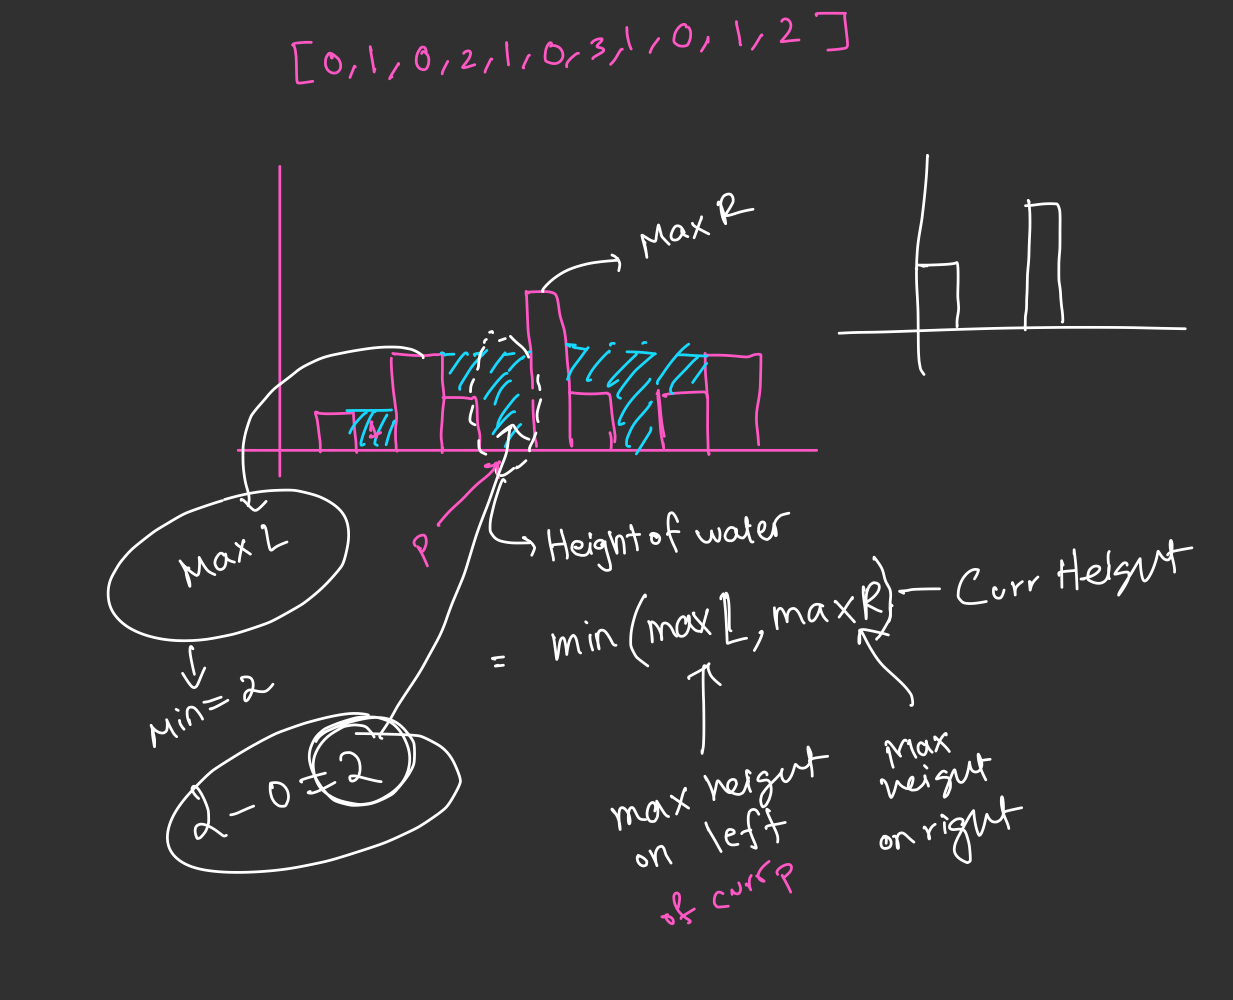 [0,1,0,2,1,0,3,1,0,1,2]
Max R
Max L
P
Height of water
= min (max L, max R) - Curr Height
Min = 2
2 - 0 = 2
max height
on left
of curr p
Max
height
on right